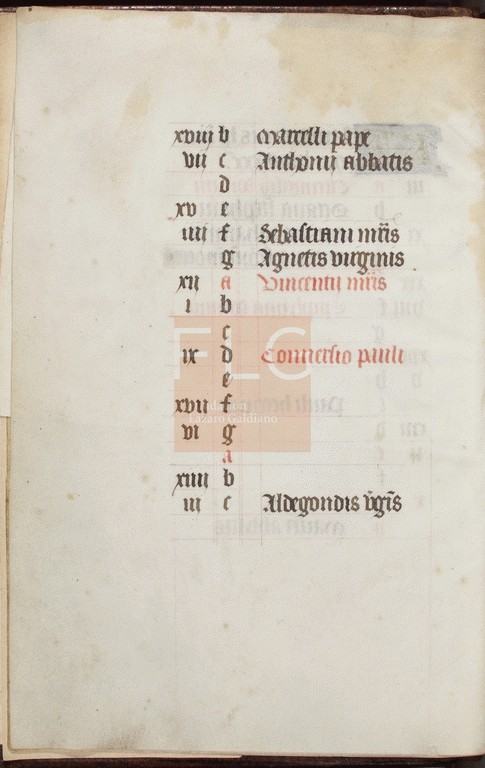 xviij b Marcelli pape
vii c Anthonij abbatis
d
xv e
iiij f Sebastiani mr̄is
g Agnetis virginis
xij a Vincentij mr̄is
i b
c
ix d Conuersio pauli
e
xvij f
vi g
a
xiiij b
iij c Aldegondis v̄gīs
FLC
Fundación
Lázaro Galdiano